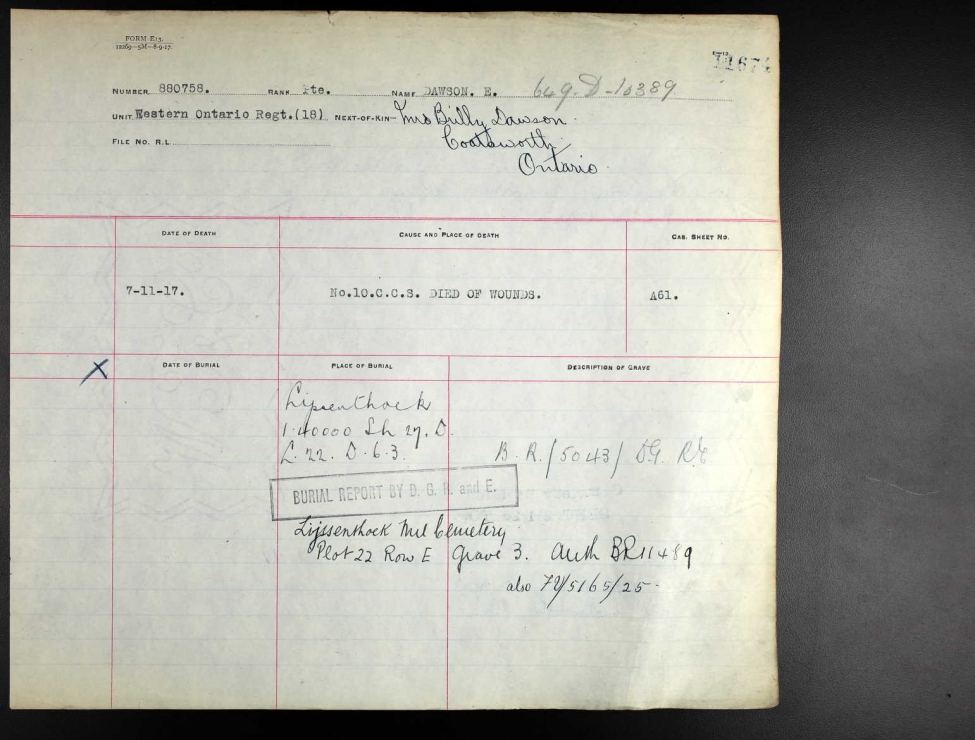 FORM E13.
12269—5M—8-9-17.
NUMBER 880758. RANK Pte. NAME DAWSON. E. 649-D-10389
UNIT Western Ontario Regt.(18) NEXT-OF-KIN— Mrs Billy Dawson
FILE NO. R.L. Coatsworth
Ontario
DATE OF DEATH CAUSE AND PLACE OF DEATH CAS. SHEET NO.
7-11-17. No.10.C.C.S. DIED OF WOUNDS. A61.
X DATE OF BURIAL PLACE OF BURIAL DESCRIPTION OF GRAVE
Lijssenthoek
1.40000 Sh 27. D.
L. 22. D. 6.3. B. R./5043/ D.G. R.E.
BURIAL REPORT BY D. G. R. and E.
Lijssenthoek Mil Cemetery
Plot 22 Row E Grave 3. Auth BR11489
also 7Y/5165/25-